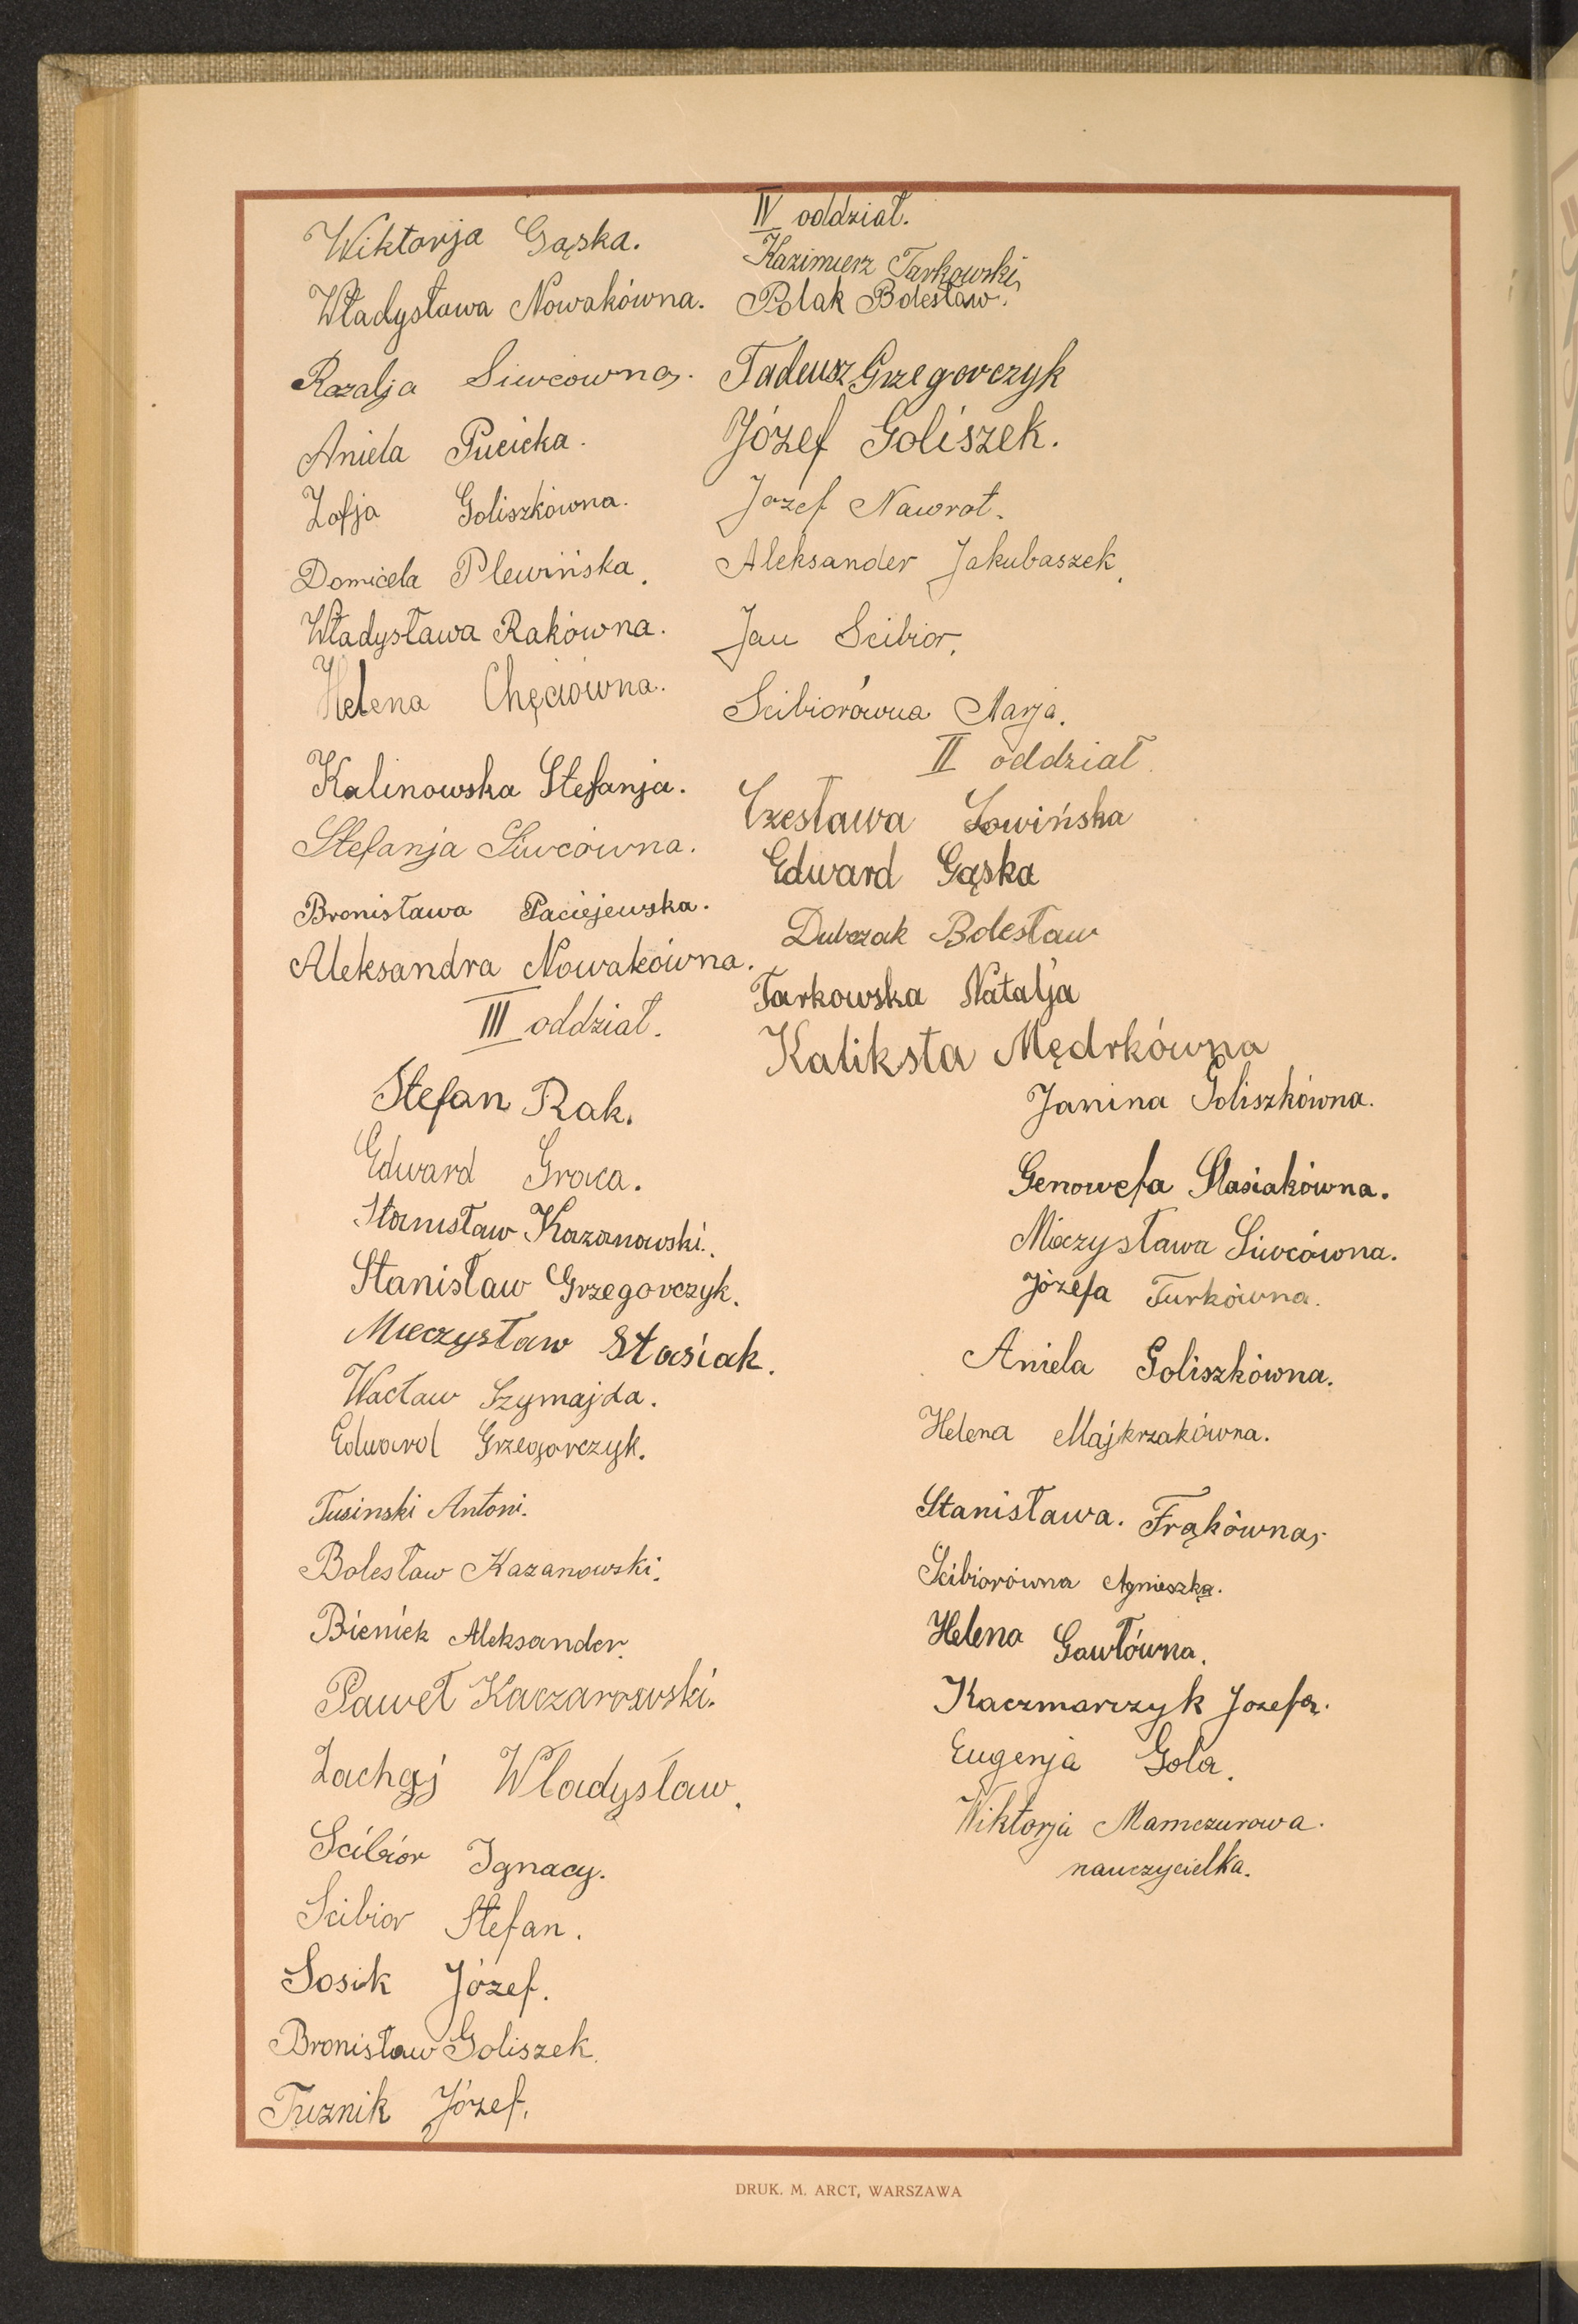 Wiktorja Gąska.
Władysława Nowakówna.
Rozalja Siwcówna.
Aniela Pucicka.
Zofja Goliszkówna.
Domicela Plewińska.
Władysława Rakówna.
Helena Chęciówna.
Kalinowska Stefanja.
Stefanja Siwcówna.
Bronisława Paciejewska.
Aleksandra Nowakówna.
III oddział.
Stefan Rak.
Edward Graca.
Stanisław Kazanowski.
Stanisław Grzegorczyk.
Mieczysław Stasiak.
Wacław Szymajda.
Edward Grzegorczyk.
Tusinski Antoni.
Bolesław Kazanowski.
Bieniek Aleksander.
Paweł Kaczarowski.
Zachaj Władysław.
Scibiór Ignacy.
Scibior Stefan.
Sosik Józef.
Bronisław Goliszek.
Tuznik Józef.
IV oddział.
Kazimierz Tarkowski,
Polak Bolesław.
Tadeusz Grzegorczyk
Józef Goliszek.
Jozef Nawrot.
Aleksander Jakubaszek.
Jan Scibior.
Scibiorówna Marja.
II oddział.
Czesława Łowińska
Edward Gąska
Dubczak Bolesław
Tarkowska Natalja
Kaliksta Mędrkówna
Janina Goliszkówna.
Genowefa Stasiakówna.
Mieczysława Siwcówna.
Józefa Turkówna.
Aniela Goliszkówna.
Helena Majkrzakówna.
Stanisława. Frąkówna,
Ścibiorówna Agnieszka.
Helena Gawłówna.
Kaczmarczyk Jozefa.
Eugenja Gola.
Wiktorja Mamczurowa.
nauczycielka.
DRUK. M. ARCT, WARSZAWA